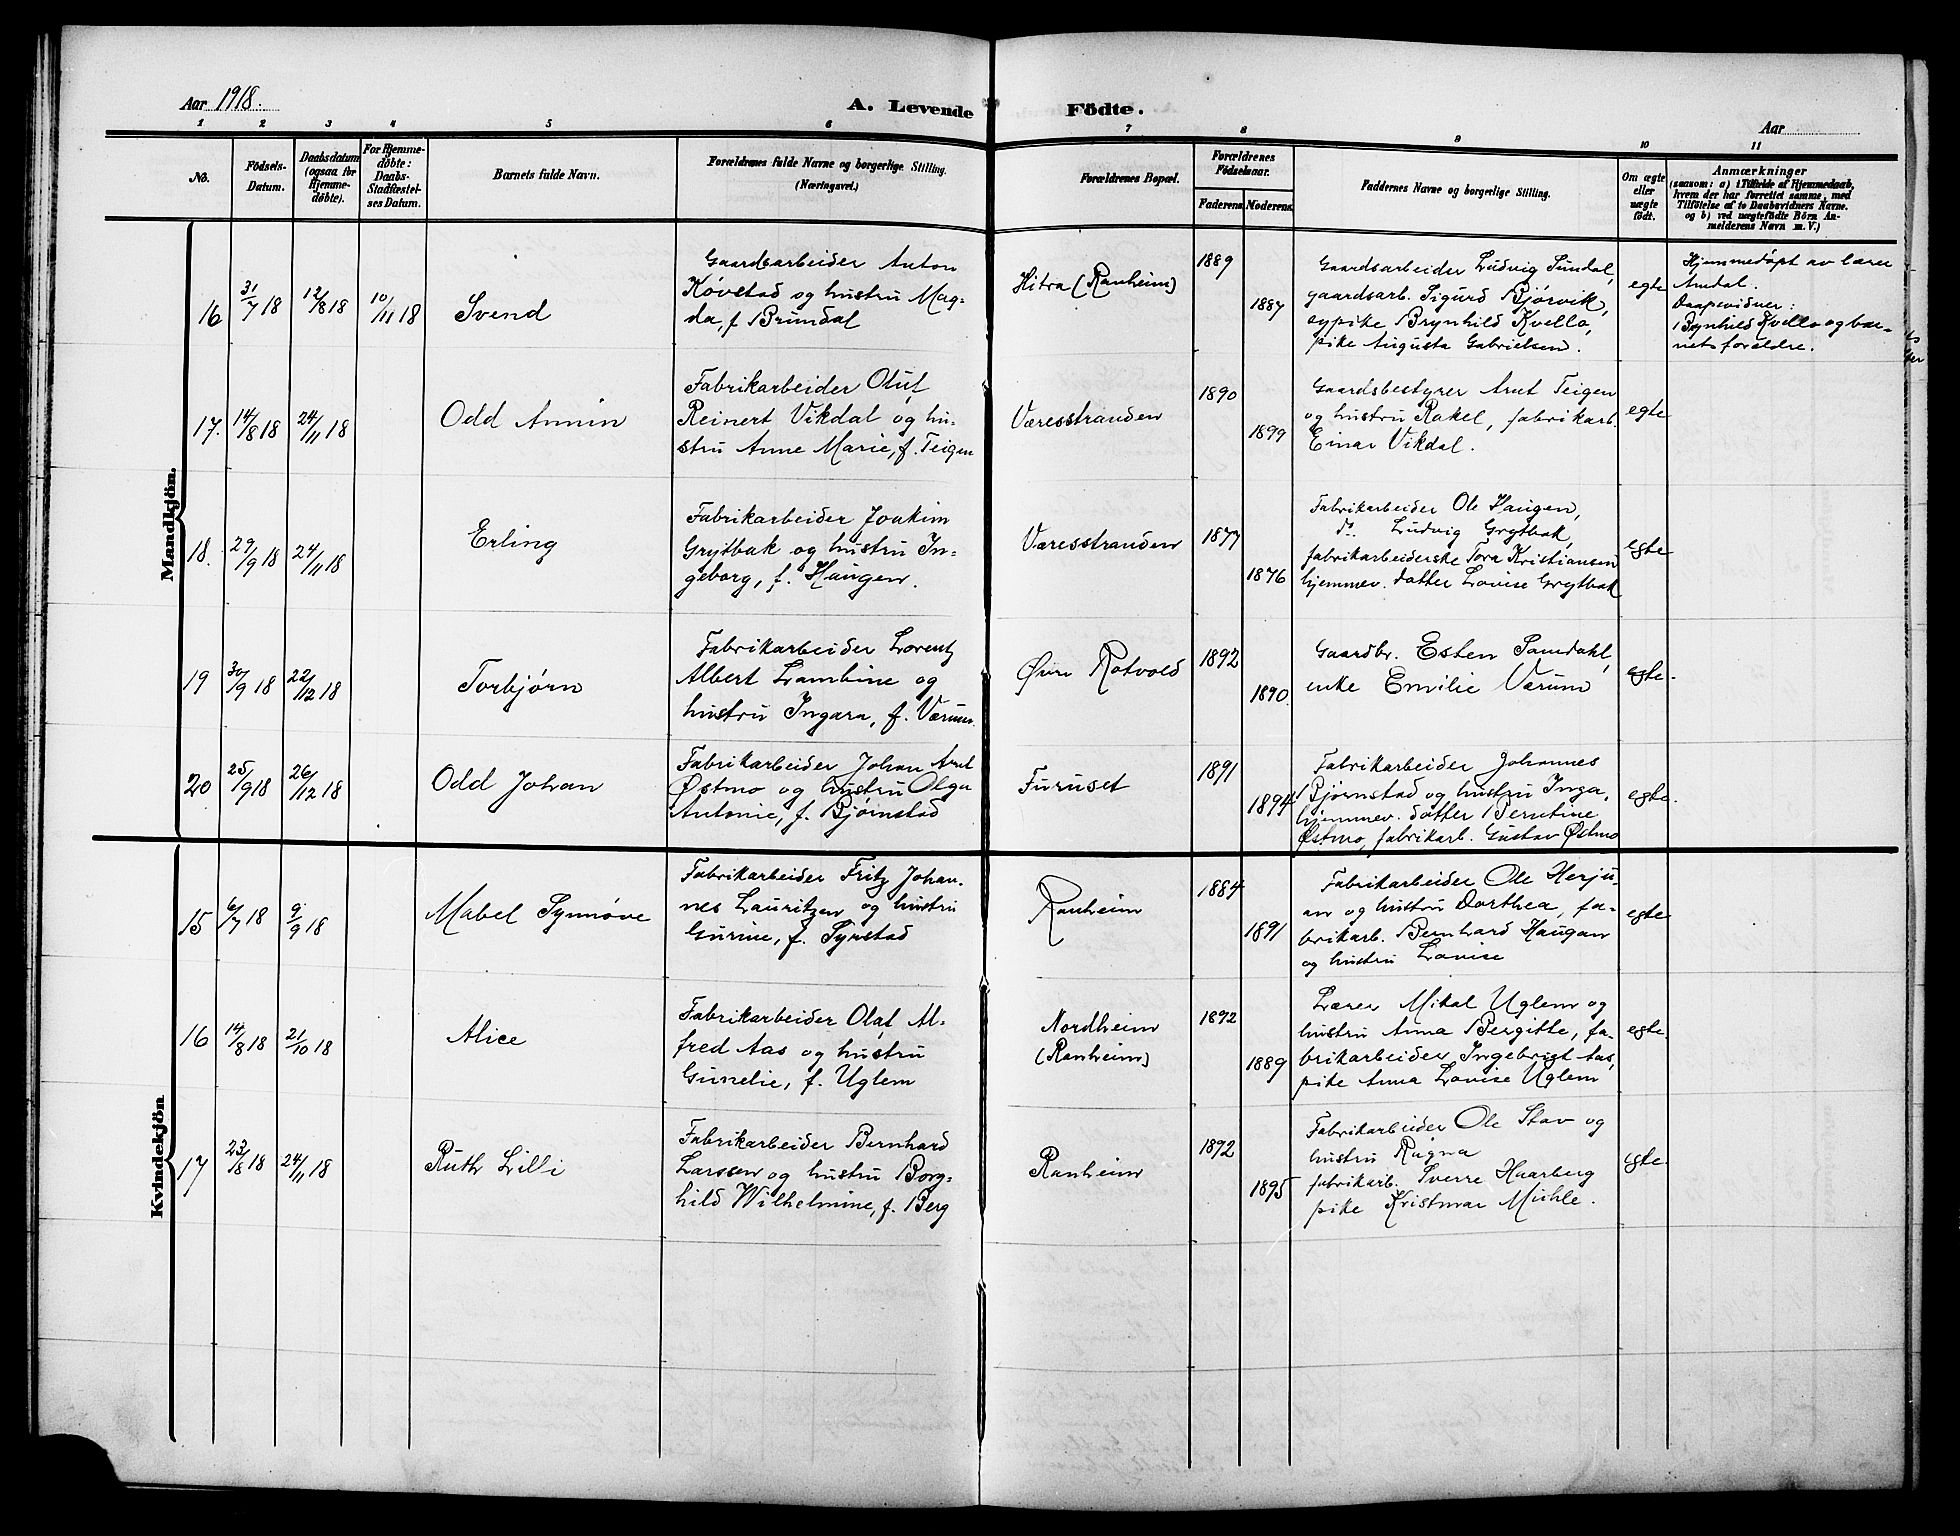 Aar 1918.
A. Levende Födte.
Aar
1 2 3 4 5 6 7 8 9 10 11
No.
Födsels-
Datum.
Daabsdatum
(ogsaa for
Hjemme-
döbte).
For Hjemme-
döbte:
Daabs-
Stadfæstel-
ses Datum.
Barnets fulde Navn.
Forældrenes fulde Navne og borgerlige Stilling.
(Næringsvei.)
Forældrenes Bopæl.
Forældrenes
Födselsaar.
Faderens. Moderens.
Faddernes Navne og borgerlige Stilling.
Om ægte
eller
uægte
födt.
Anmærkninger
(saasom: a) i Tilfælde af Hjemmedaab,
hvem der har forrettet samme, med
Tilföielse af to Daabsvidners Navne.
og b) ved uægtefödte Börn An-
melderens Navn m. V.)
Mandkjön.
16
31/7 18
12/8 18
10/11 18
Svend
Gaardsarbeider Anton
Køvstad og hustru Mag-
da, f. Brundal
Hitra (Ranheim)
1889
1887
Gaardsarbeider Ludvig Sundal,
gaardsarb. Sigurd Bjørvik,
sypike Brynhild Kvello,
pike Augusta Gabrielsen.
egte
Hjemmedøpt av lærer
Amdal.
Daapsvidner:
Brynhild Kvello og bar-
nets forældre.
17.
14/8 18
24/11 18
Odd Armin
Fabrikarbeider Oluf
Reinert Vikdal og hu-
stru Anne Marie, f. Teigen
Væresstranden
1890
1899
Gaardsbestyrer Arnt Teigen
og hustru Rakel, fabrikarb.
Einar Vikdal.
egte
18.
29/9 18
24/11 18
Erling
Fabrikarbeider Joakim
Grytbak og hustru In-
geborg, f. Haugen.
Væresstranden
1877
1876
Fabrikarbeider Ole Haugen,
do. Ludvig Grytbak,
fabrikarbeiderske Tora Kristiansen
hjemmev. datter Lovise Grytbak
egte
19
30/9 18
22/12 18
Torbjørn
Fabrikarbeider Lorentz
Albert Lambine og
hustru Ingara, f. Værum.
Øvre Rotvold
1892
1890
Gaardbr. Esten Samdahl,
enke Emilie Værum
egte.
20
25/9 18
26/12 18
Odd Johan
Fabrikarbeider Johan Arnt
Østmo og hustru Olga
Antonie, f. Bjørnstad
Furuset
1891
1894
Fabrikarbeider Johannes
Bjørnstad og hustru Inga,
hjemmev. datter Berntine
Østmo, fabrikarb. Gustav Østmo
egte.
Kvindekjön
15
6/7 18
9/9 18
Mabel Synnøve
Fabrikarbeider Fritz Johan-
nes Lauritzen og hustru
Gurine, f. Syrstad
Ranheim
1884
1891
Fabrikarbeider Ole Herju-
an og hustru Dorthea, fa-
brikarb. Bernhard Haugan
og hustru Lovise
egte
16
14/8 18
21/10 18
Alice
Fabrikarbeider Olaf Al-
fred Aas og hustru
Gunelie, f. Uglem
Nordheim
(Ranheim)
1892
1889
Lærer Mikal Uglem og
hustru Anna Bergitte, fa-
brikarbeider Ingebrigt Aas,
pike Anna Lovise Uglem
egte.
17
23/8 18
24/11 18
Ruth Lilli
Fabrikarbeider Bernhard
Larssen og hustru Borg-
hild Wilhelmine, f. Berg
Ranheim
1892
1895
Fabrikarbeider Ole Stav og
hustru Ragna
fabrikarb. Sverre Haarberg
pike Kristmar Mühle.
egte.